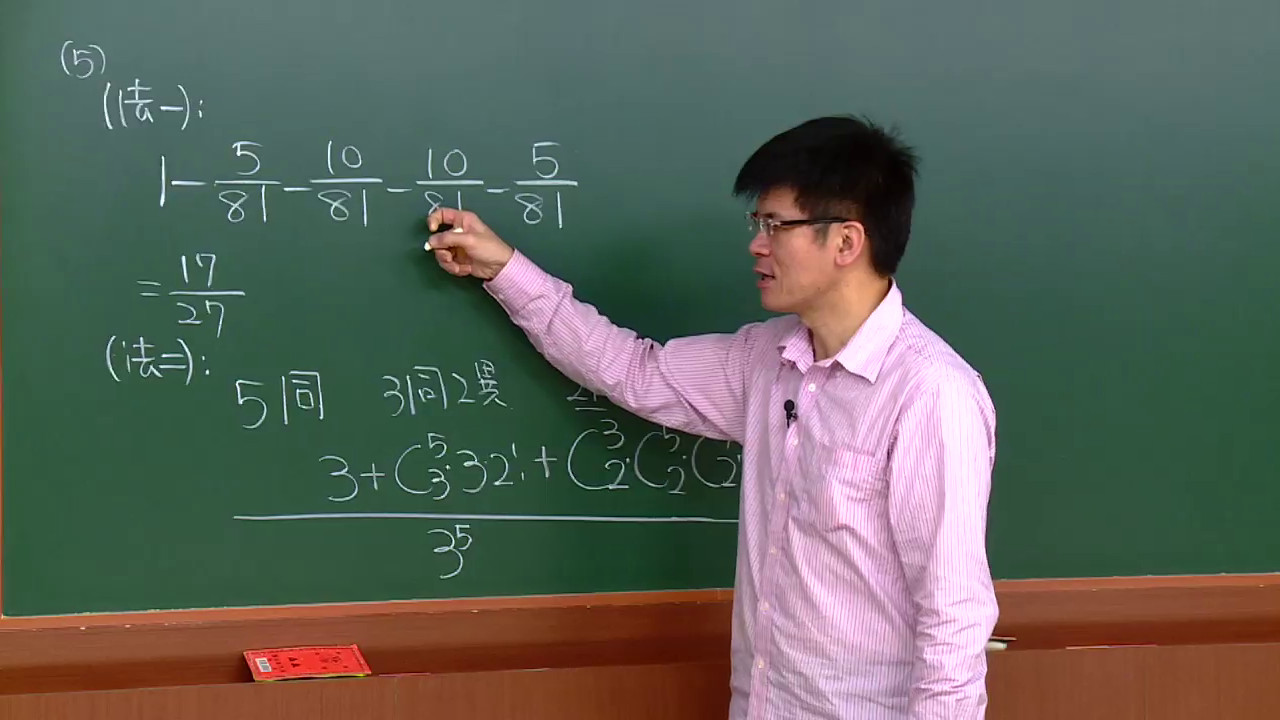 (5)
(法一):
1 - 5/81 - 10/81 - 10/81 - 5/81
= 17/27
(法二):
5同 3同2異
3 + C⁵₃·3·2! + C³₂·C⁵₂·C
3⁵